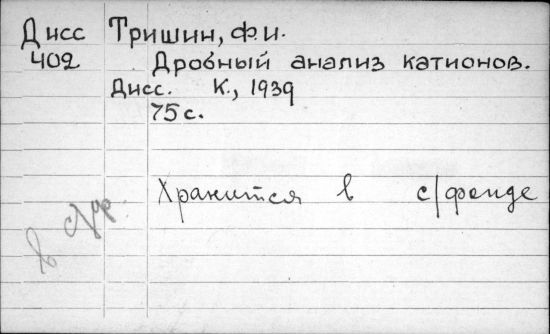 Дисс Тришин, Ф.И.
402 Дробный анализ катионов.
Дисс. К., 1939
75 с.
Хранится в с/фонде
в с/ф.